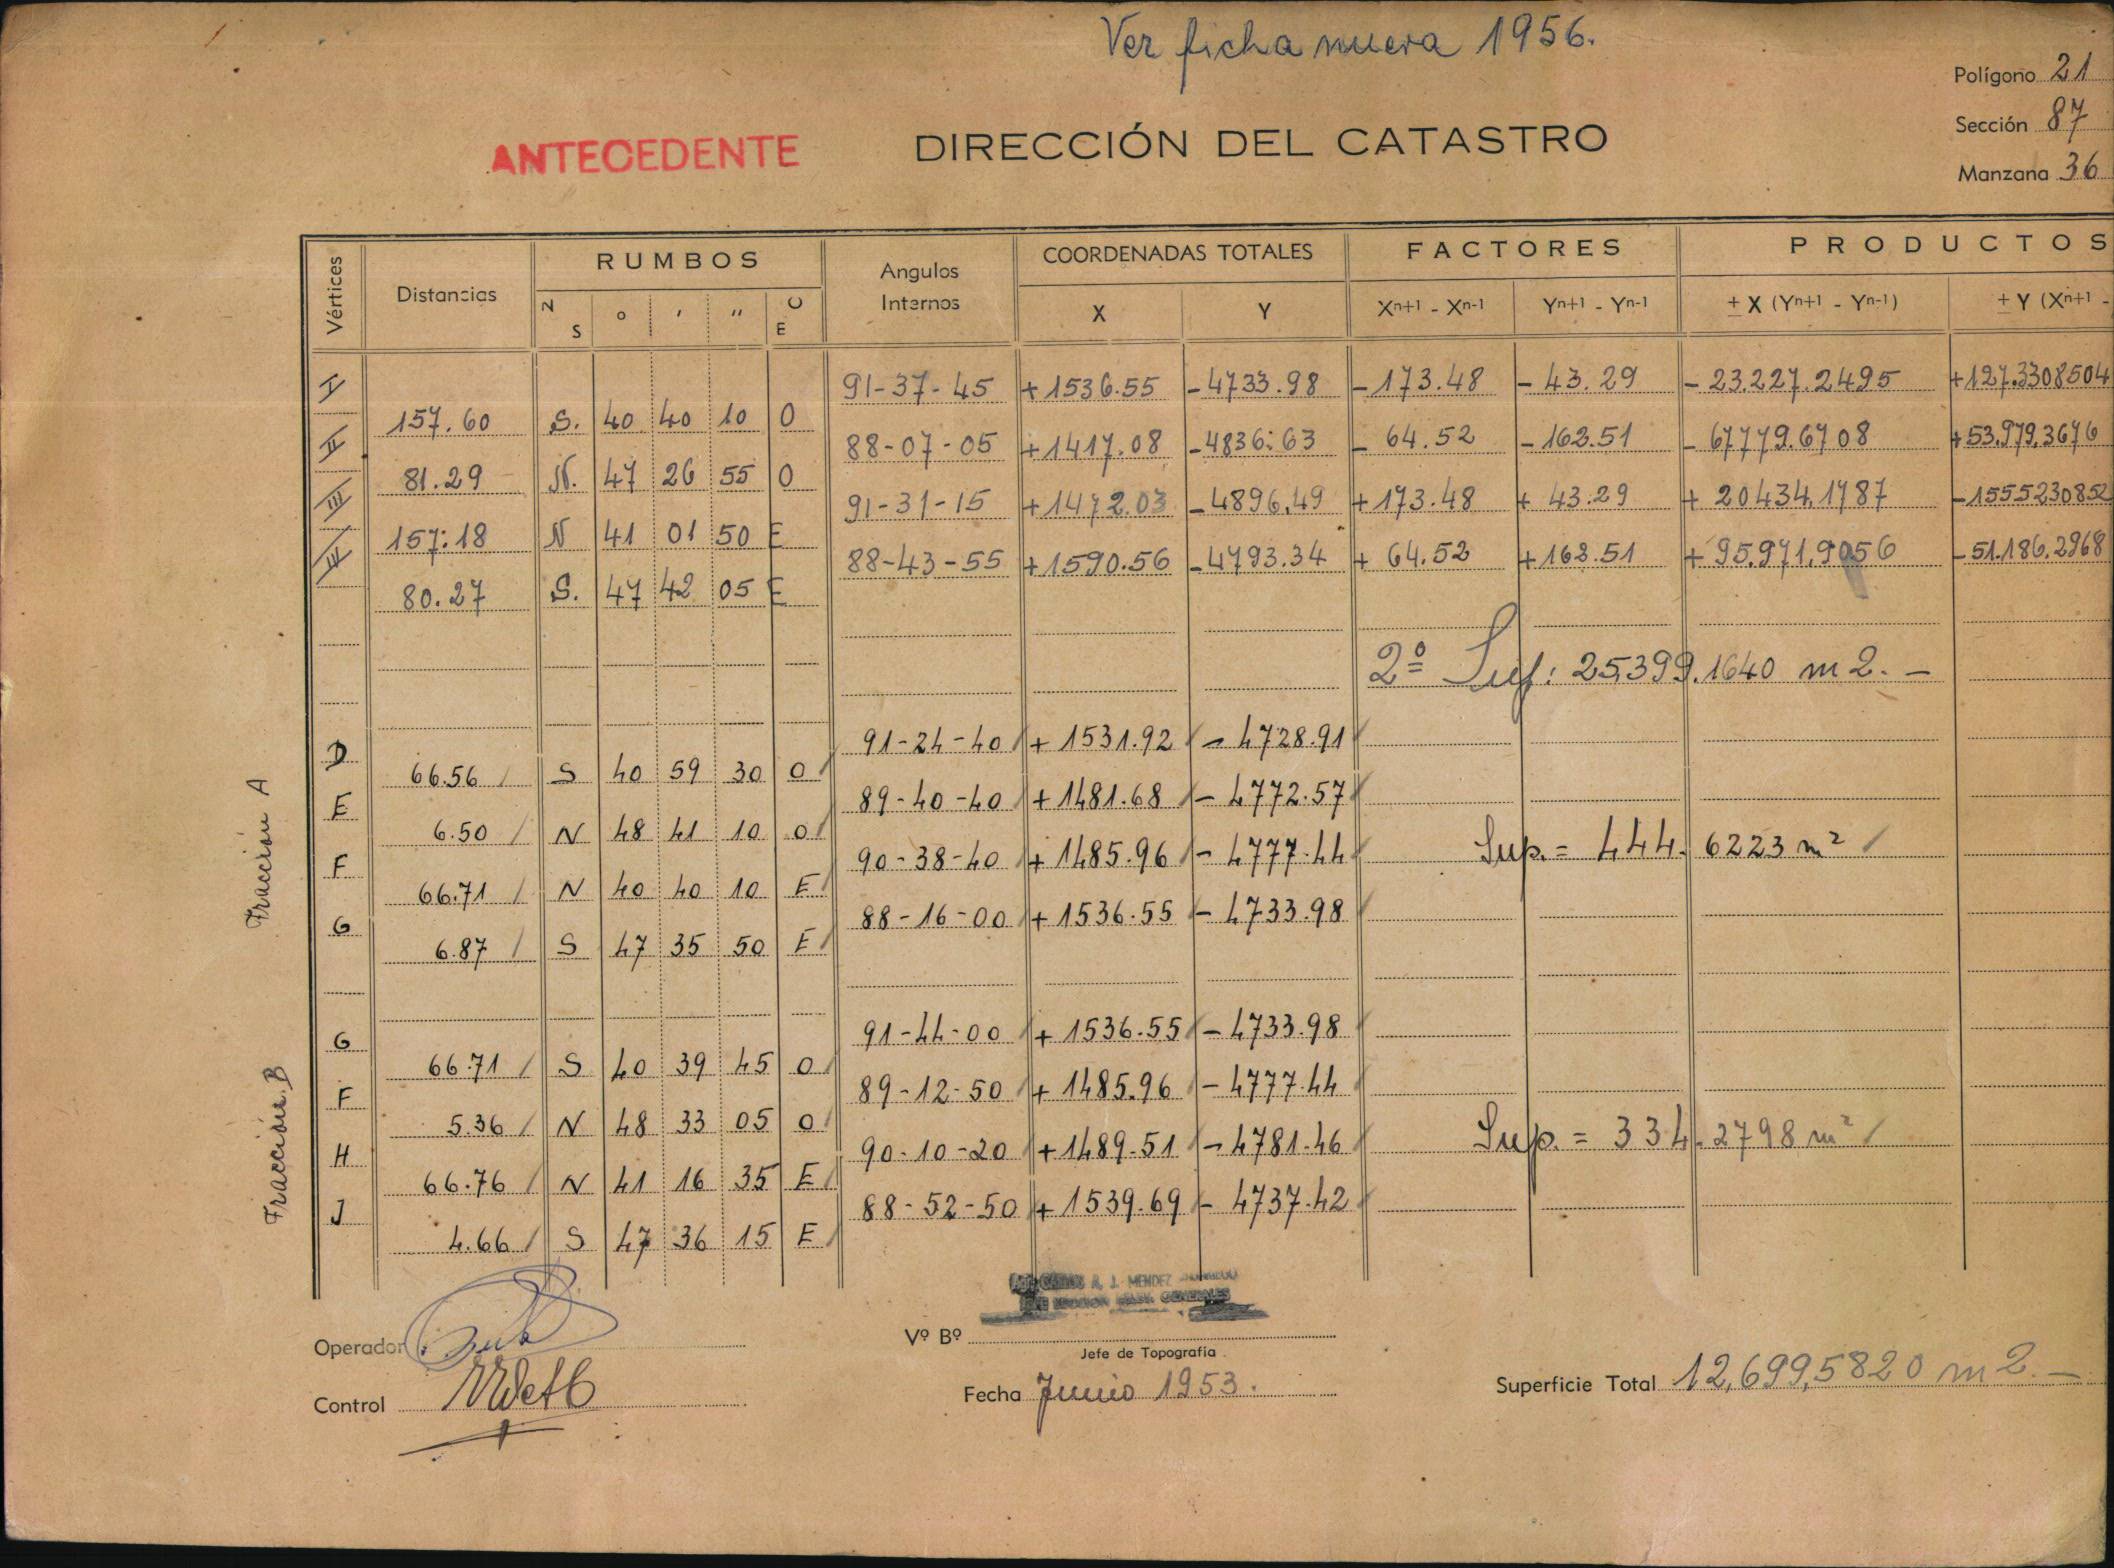 Ver ficha nueva 1956.
Polígono 21
Sección 87
Manzana 36
ANTECEDENTE
DIRECCIÓN DEL CATASTRO
Vértices Distancias RUMBOS Angulos Internos COORDENADAS TOTALES FACTORES PRODUCTOS
N S ° ' " O E X Y Xn+1 - Xn-1 Yn+1 - Yn-1 ± X (Yn+1 - Yn-1) ± Y (Xn+1 -
I 91-37-45 +1536.55 -4733.98 -173.48 -43.29 -23.227.2495 +127.3308504
157.60 S. 40 40 10 O
II 88-07-05 +1417.08 -4836.63 -64.52 -162.51 -67779.6708 +53,979,3676
81.29 N. 47 26 55 O
III 91-31-15 +1472.03 -4896,49 +173.48 +43.29 +20434,1787 -1555230852
157.18 N 41 01 50 E
IV 88-43-55 +1590.56 -4793.34 +64.52 +162.51 +95.971,9056 -51.186.2968
80.27 S. 47 42 05 E
2º Sup: 25,399.1640 m2.-
Fracción A
D 91-24-40 +1531.92 -4728.91
66.56 S 40 59 30 O
E 89-40-40 +1481.68 -4772.57
6.50 N 48 41 10 O
F 90-38-40 +1485.96 -4777.44 Sup.= 444.6223 m²
66.71 N 40 40 10 E
G 88-16-00 +1536.55 -4733.98
6.87 S 47 35 50 E
Fracción B
G 91-44-00 +1536.55 -4733.98
66.71 S 40 39 45 O
F 89-12-50 +1485.96 -4777.44
5.36 N 48 33 05 O
H 90-10-20 +1489.51 -4781.46 Sup.= 334.2798 m²
66.76 N 41 16 35 E
J 88-52-50 +1539.69 -4737.42
4.66 S 47 36 15 E
A. J. MENDEZ
GENERALES
Operador
Vº Bº
Jefe de Topografía
Control
Fecha Junio 1953.
Superficie Total 12,699,5820 m2.-